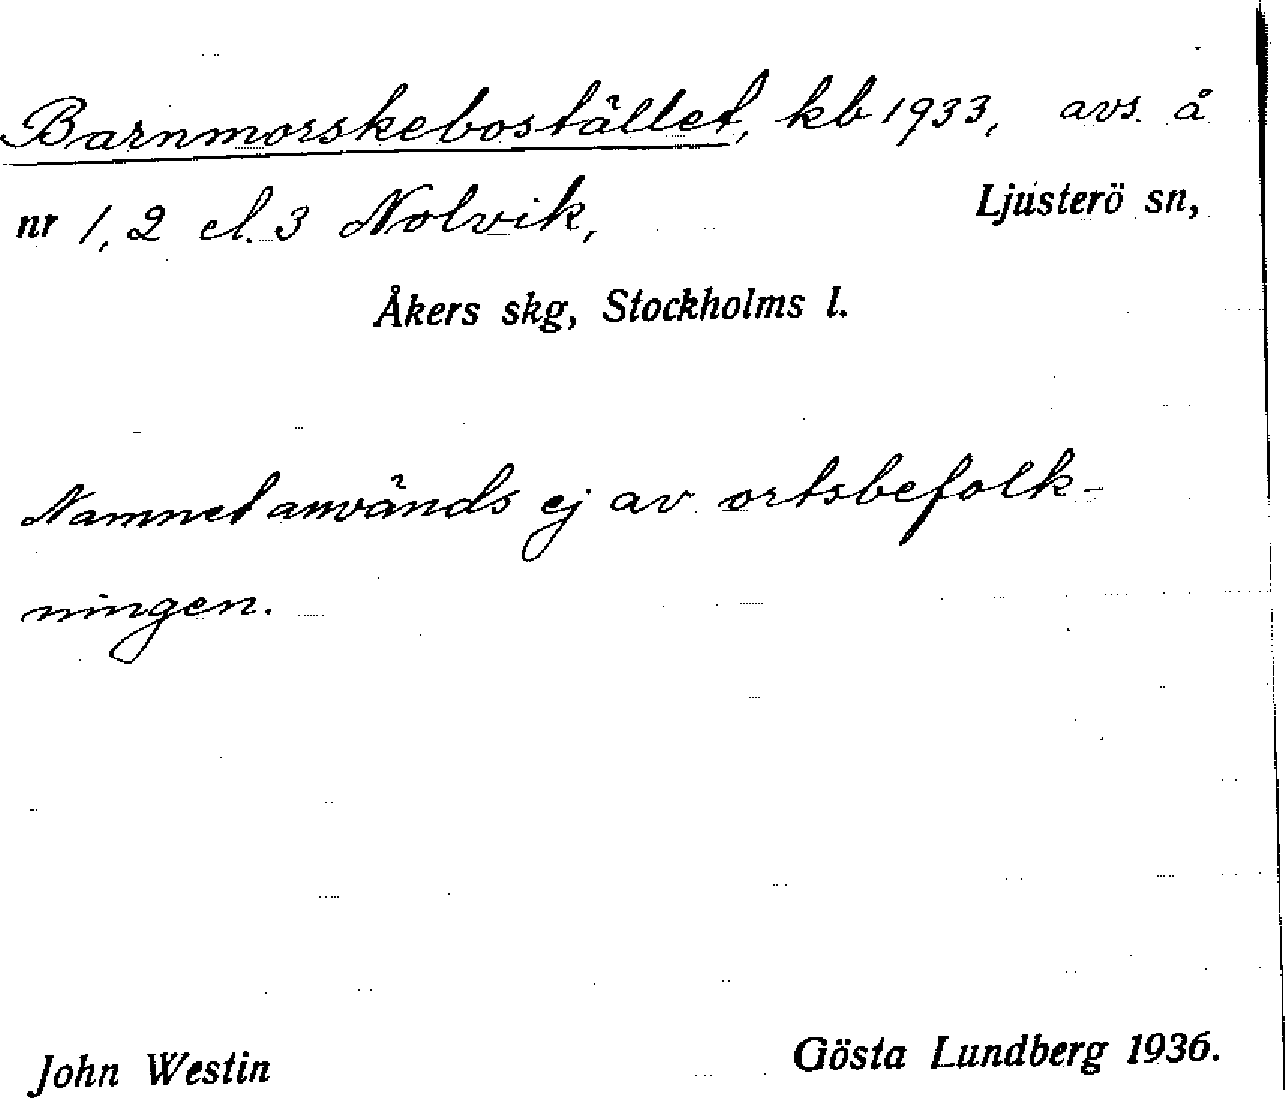 Barnmorskebostället, kb 1933, avs. å
nr 1, 2 el. 3 Nolvik, Ljusterö sn,
Åkers skg, Stockholms l.
Namnet används ej av ortsbefolk-
ningen.
John Westin Gösta Lundberg 1936.